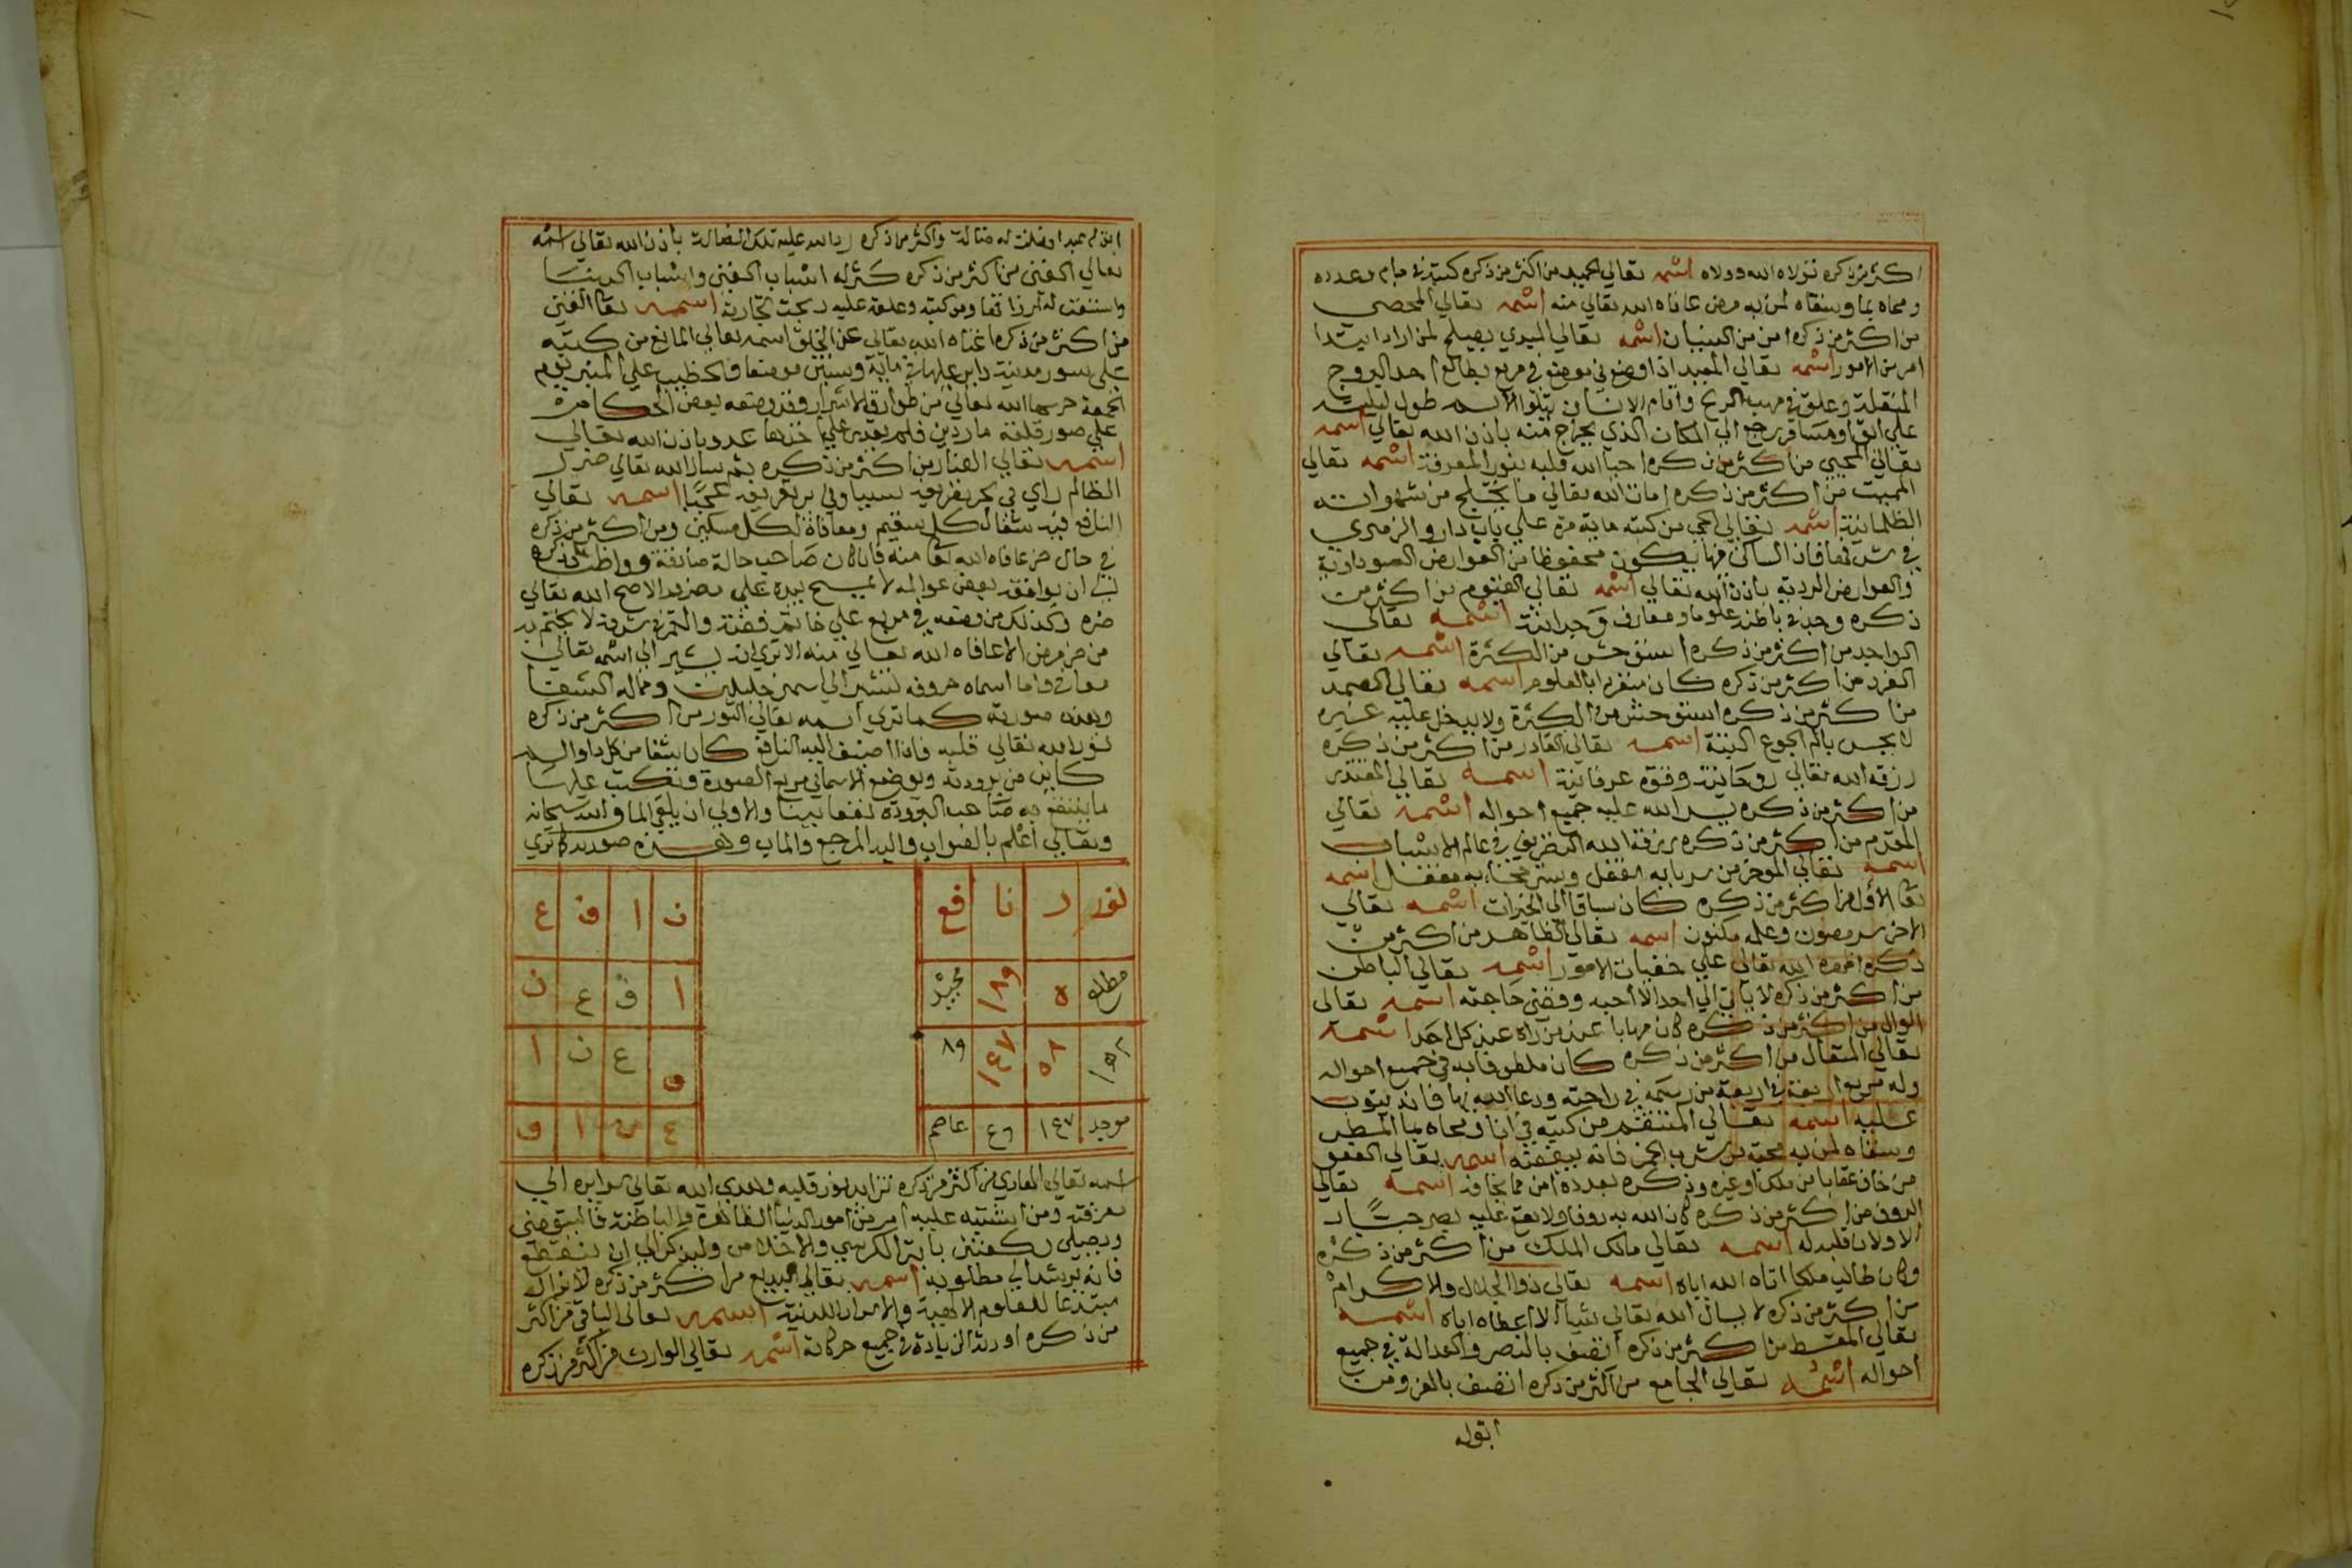 اكثر من ذكره تولاه الله وولاه اسمه تعالي الحميد من اكثر من ذكره كتبه في جام بعدده
ومحاه بما وسقاه لمن به مرض عافاه الله تعالي منه اسمه تعالي المحصي
من اكثر من ذكره امن من النسيان اسمه تعالي المبدي يصلح لمن اراد ابتدا
امر من الامور اسمه تعالي المعيد اذا وضع في مربع بطالع احد البروج
المنقلبة وعلق في مهب الريح واقام الانسان يتلوا الاسم طول ليلته
علي ابق او مسافر رجع الي المكان الذي يخرج منه باذن الله تعالي اسمه
تعالي المحيي من اكثر من ذكره احيا الله قلبه بنور المعرفة اسمه تعالي
المميت من اكثر من ذكره امات الله تعالي ما من شهواته
الظلمانية اسمه تعالي الحي من كتبه ماية مرة علي باب دار والزهري
في شرفها فان الساكن فيها يكون محفوظا من العوارض السوداوية
والعوارض الردية باذن الله تعالي اسمه تعالي القيوم من اكثر من
ذكره وجد في باطنه علوما ومعارف وجدانية اسمه تعالي
الواجد من اكثر من ذكره استوحش من الكثرة اسمه تعالي
الفرد من اكثر من ذكره كان منفردا بالعلوم اسمه تعالي الصمد
من اكثر من ذكره استوحش من الكثرة ولا يدخل عليه غيره
لا يحس بالم الجوع البتة اسمه تعالي القادر من اكثر من ذكره
رزقه الله تعالي روحانية وقوة عرفانية اسمه تعالي المقتدر
من اكثر من ذكره يسر الله عليه جميع احواله اسمه تعالي
المقدم من اكثر من ذكره يرزقه الله التصريف في عالم الاسباب
اسمه تعالي الموخر من اسمه
تعا الاول من اكثر من ذكره كان سباقا الي الخيرات اسمه تعالي
الاخر سر مصون وعلم مكنون اسمه تعالي الظاهر من اكثر من
ذكره اظهره الله تعالي علي خفيات الامور اسمه تعالي الباطن
من اكثر من ذكره لا ياتي الي احد الا احبه وقضي حاجته اسمه تعالي
الوال من اكثر من ذكره كان مهابا عند من راه عند كل احد اسمه
تعالي المتعال من اكثر من ذكره كان ملطوفا به في جميع احواله
وله مربع اربعة في اربعة من رسمه في راحته ودعا الله بها فانه يتوب
عليه اسمه تعالي المنتقم من كتبه في انا ومحاه بما المطر
وسقاه لمن به محبة من شرب الخمر فانه يبغضه اسمه تعالي العفو
من خاف عقابا من ملك او غيره وذكره بعدده امن مما يخافه اسمه تعالي
الروف من اكثر من ذكره كان الله به روفا ولا يقع عليه بصر جبار
الا ولان قلبه له اسمه تعالي مالك الملك من اكثر من ذكره
وكان طالب ملكا اتاه الله اياه اسمه تعالي ذو الجلال والاكرام
من اكثر من ذكره لا يسال الله تعالي شيا الا اعطاه اياه اسمه
تعالي المقسط من اكثر من ذكره اتصف بالنصر والعدالة في جميع
احواله اسمه تعالي الجامع من اكثر من ذكره اتصف بالعز ومن
ابق له
ابق له عبد او ضلت له ضالة واكثر من ذكره رد الله عليه تلك الضالة باذن الله تعالي اسمه
تعالي الغني من اكثر من ذكره كثر له اسباب الغني واسباب الدنيا
ومن كتبه وعلقه عليه ربحت تجارته اسمه تعا المغني
من اكثر من ذكره اغناه الله تعالي عن الخلق اسمه تعالي المانع من كتبه
علي سور مدينة داير عليها في ماية وستين موضعا والخطيب علي المنبر يوم
الجمعة حرسها الله تعالي من طوارق الاشرار وقد وضعه بعض الحكما في
علي صور قلعة ماردين فلم يقدر علي اخذها عدو باذن الله تعالي
اسمه تعالي الضار من اكثر من ذكره
الظالم راي في عجبا اسمه تعالي
النافع فيه شفا لكل سقيم ومعافاة لكل مسكين ومن اكثر من ذكره
في حال ضر عافاه الله تعا منه فان كان صاحب حالة صادقة وواظب علي ذكره
الي ان يوافقه بعض عوالمه لا يمسح بيده علي مضرور الا صح الله تعالي
ضره وكذلك من وضعه في مربع علي خاتم فضة والقمر في شرفه لا يختم به
من ضر مرض الا عافاه الله تعالي منه الا تري انه يشير الي اسمه تعالي
معافي واما اسماه حروفه تشير الي اسمين جليلين وفيها له الشفا
وهذه صورته كما تري اسمه تعالي النور من اكثر من ذكره
نور الله تعالي قلبه فاذا اضيف اليه النافع كان شفا من كل دا والم
كاين من برودته ويوضع الاسماني مربع الصورة وتكتب عليها
ما ينتفع به صاحب البرودة نفعا بينا والاولي ان يلقي الما والله سبحانه
وتعالي اعلم بالصواب واليه المرجع والماب وهذه صورته كما تري
نور ر نا فع
مطلع ٥ ١٨٩ مجيد
١٥٨ ٥٨ ١٤٧ ٨٩
موجد ١٤٧ ٤٩ عاصم
ن ا ف ع
ا ف ع ن
ف ع ن ا
ع ن ا ف
اسمه تعالي الهادي من اكثر من ذكره تزايد نور قلبه وهدي الله تعالي سرايره الي
معرفته ومن اشتبه عليه امر من امور الدنيا الظاهرة والباطنة فاليتوضي
ويصلي ركعتين باية الكرسي والاخلاص وليذكر الي ان ينقطع
فانه يرشد الي مطلوبه اسمه تعالي البديع من اكثر من ذكره لا يزال
مبتدعا للعلوم الالهية والاسرار اللدنية اسمه تعالي الباقي من اكثر
من ذكره اورثه الزيادة في جميع حركاته اسمه تعالي الوارث من اكثر من ذكره